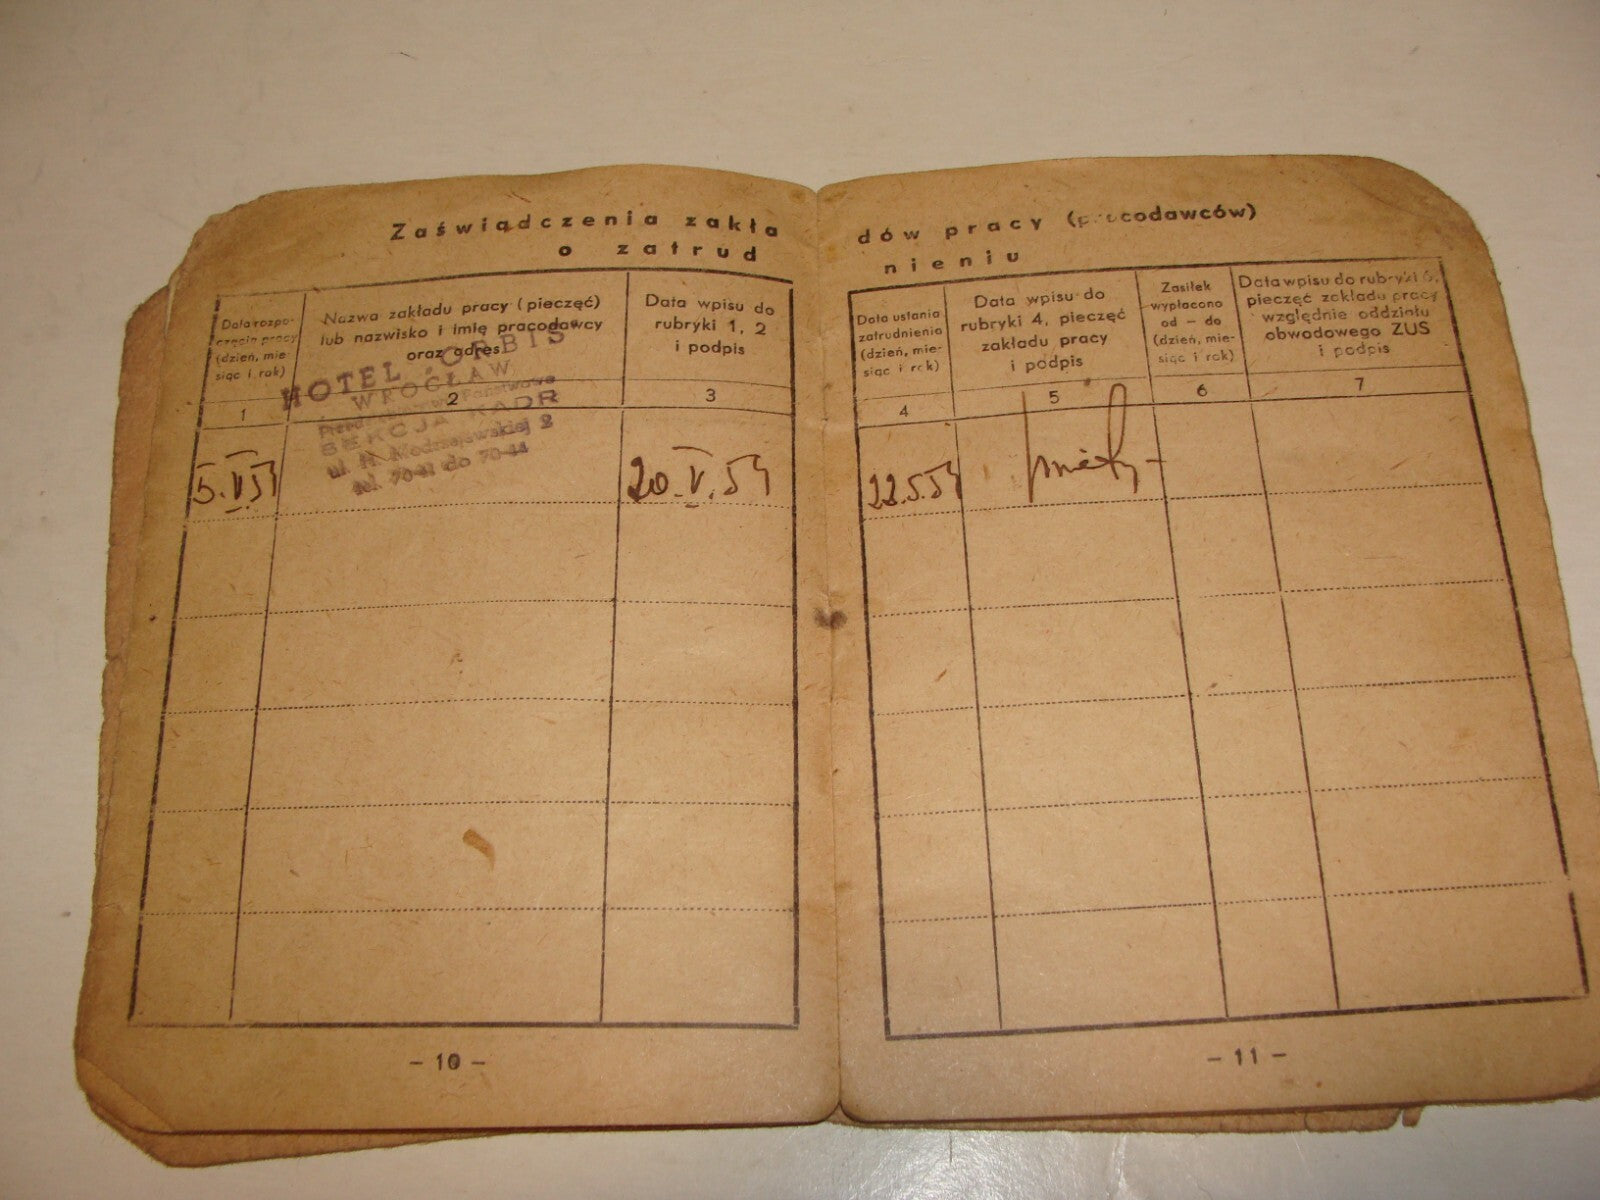 Zaświadczenia zakła
o zatrud
Data rozpo-
częcia pracy
(dzień, mie-
siąc i rok)
Nazwa zakładu pracy (pieczęć)
lub nazwisko i imię pracodawcy
oraz adres
Data wpisu do
rubryki 1, 2
i podpis
1
2
3
HOTEL „ORBIS"
WROCŁAW
SEKCJA KADR
ul. H. Modrzejewskiej 2
tel. 70-41 do 70-44
5.V.54
20.V.54
- 10 -
dów pracy (pracodawców)
nieniu
Data ustania
zatrudnienia
(dzień, mie-
siąc i rok)
Data wpisu do
rubryki 4, pieczęć
zakładu pracy
i podpis
Zasiłek
wypłacono
od - do
(dzień, mie-
siąc i rok)
Data wpisu do rubryki 6,
pieczęć zakładu pracy
względnie oddziału
obwodowego ZUS
i podpis
4
5
6
7
22.5.54
- 11 -